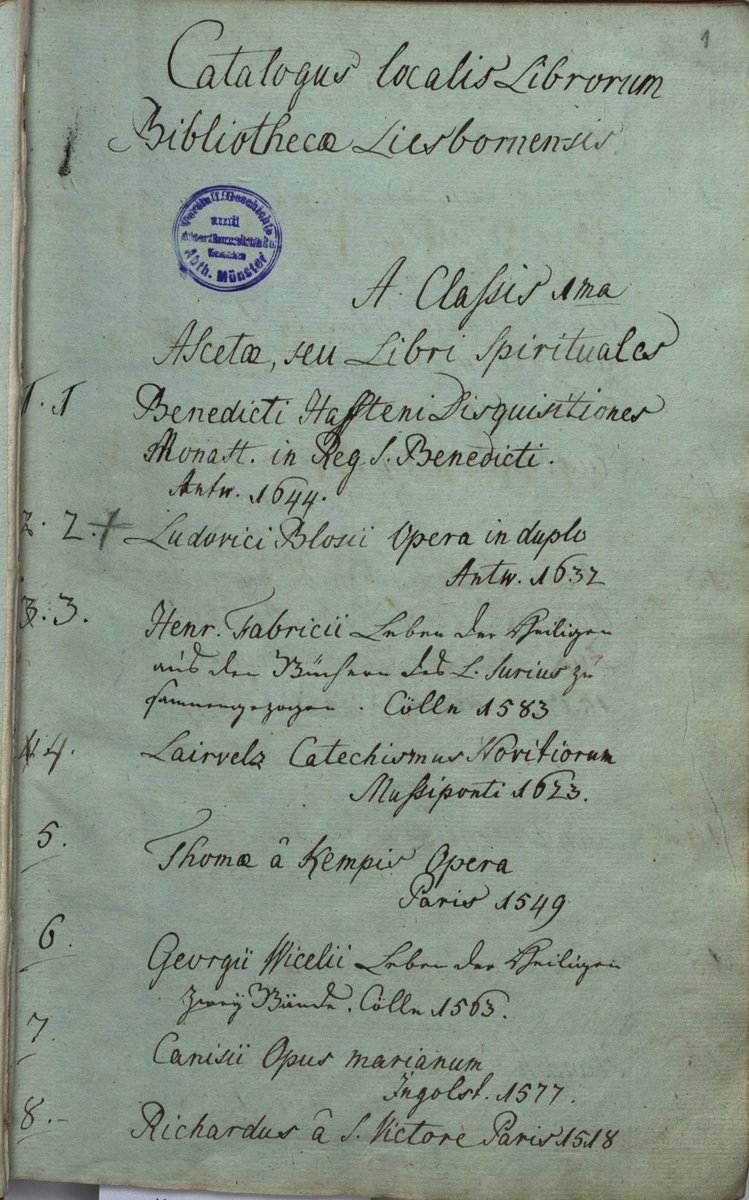 1
Catalogus localis Librorum
Bibliothecæ Liesbornensis.
Verein f. Geschichte
und
Alterthumskunde
Abth. Münster
A. Claſsis 1ma
Ascetæ, seu Libri Spirituales
1. 1 Benedicti Haffteni Disquisitiones
Monast. in Reg. S. Benedicti.
Antw. 1644.
2. 2. + Ludovici Blosii Opera in duplo
Antw. 1632
3. 3. Henr. Fabricii Leben der Heiligen
aus den Büchern des L. Surius zu
sammengezogen. Cölln 1583
4 4. Lairvelz Catechismus Novitiorum
Muſsiponti 1623.
5. Thomæ â Kempis Opera
Paris 1549
6. Georgii Wicelii Leben der Heiligen
zweÿ Bände. Cölln 1563.
7. Canisii Opus marianum
Ingolst. 1577.
8.- Richardus â S. Victore Paris 1518